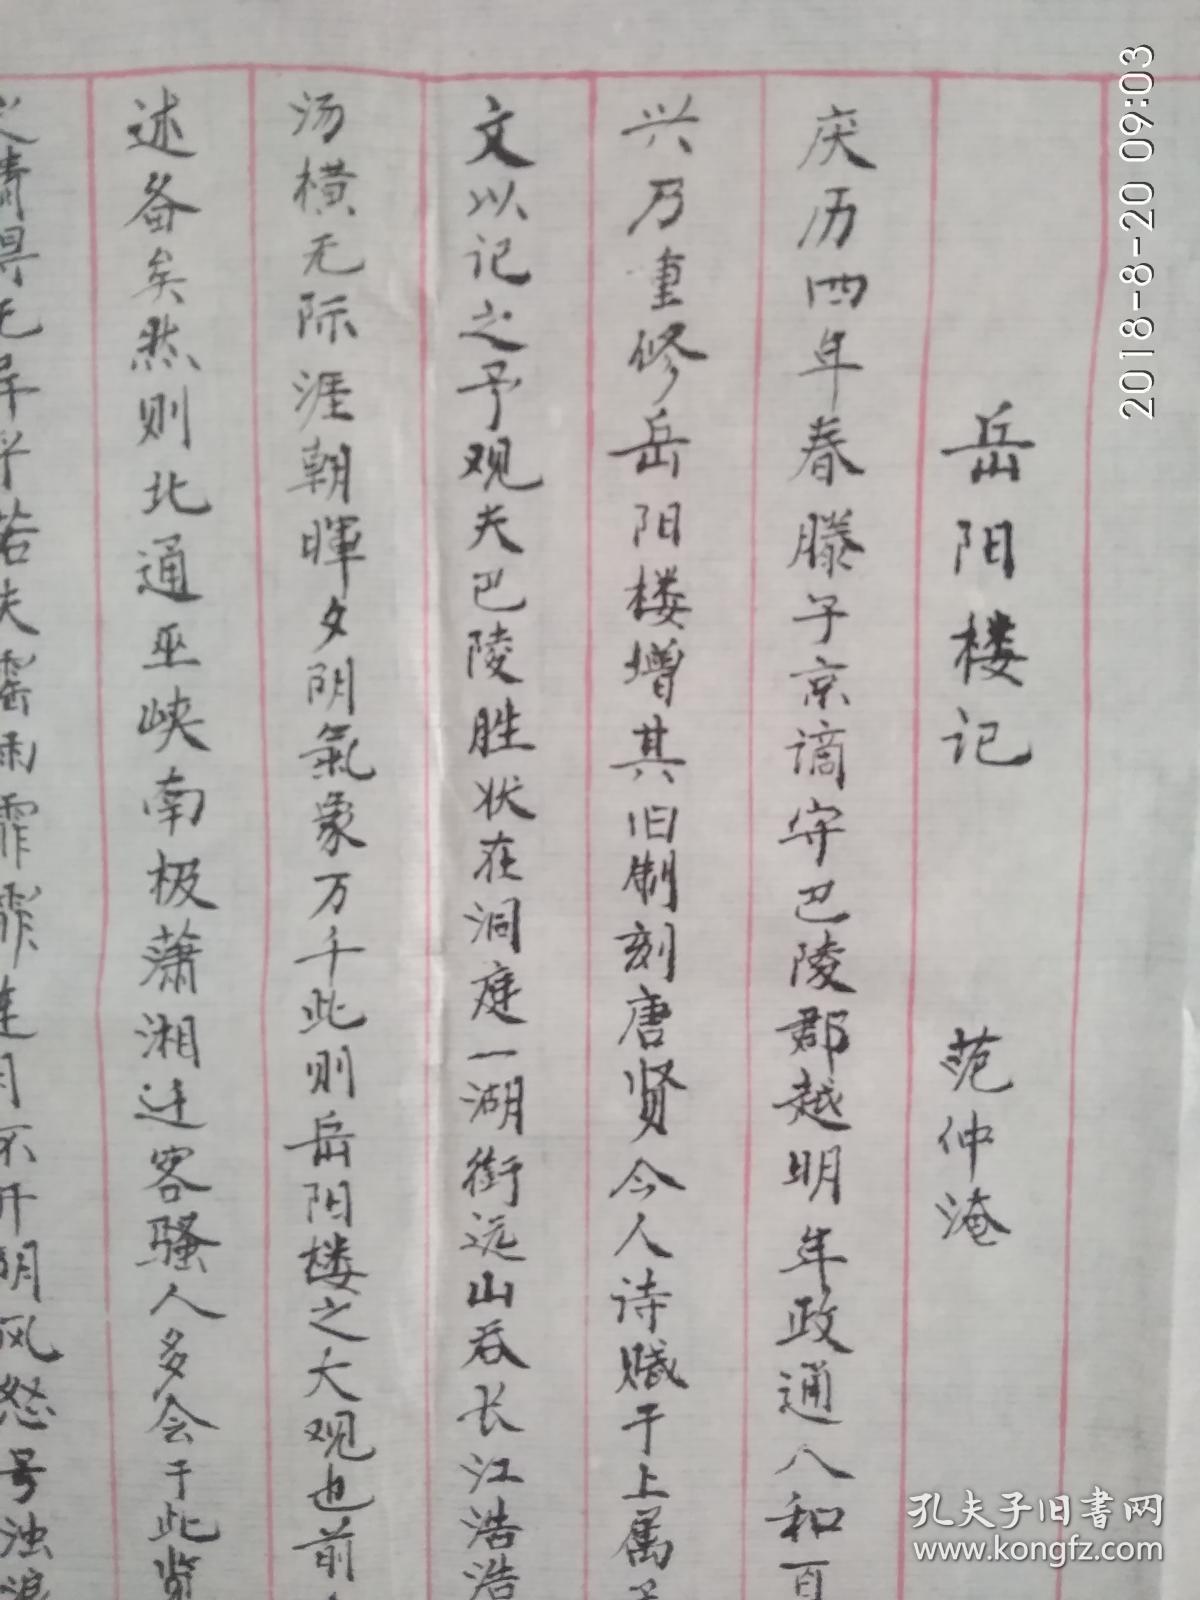 岳阳楼记 范仲淹
庆历四年春滕子京谪守巴陵郡越明年政通人和百
兴乃重修岳阳楼增其旧制刻唐贤今人诗赋于上属予
文以记之予观夫巴陵胜状在洞庭一湖衔远山吞长江浩浩
汤横无际涯朝晖夕阴氣象万千此则岳阳楼之大观也前
述备矣然则北通巫峡南极潇湘迁客骚人多会于此览
之情得无异乎若夫霪雨霏霏连月不开朝风怒号浊浪
2018-8-20 09:03
孔夫子旧书网
www.kongfz.com